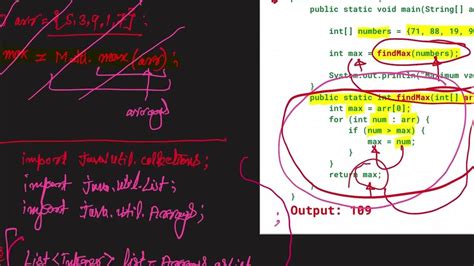 arr = [5, 3, 9, 1, 7]
max = Math.max(arr);
arrays
import java.util.collections;
import java.util.List;
import java.util.Arrays;
List<Integer> list = Arrays.asList
public static void main(String[] a
int[] numbers = {71, 88, 19, 9
int max = findMax(numbers);
System.out.println("Maximum va
public static int findMax(int[] ar
int max = arr[0];
for (int num : arr) {
if (num > max) {
max = num;
}
}
return max;
}
Output: 109